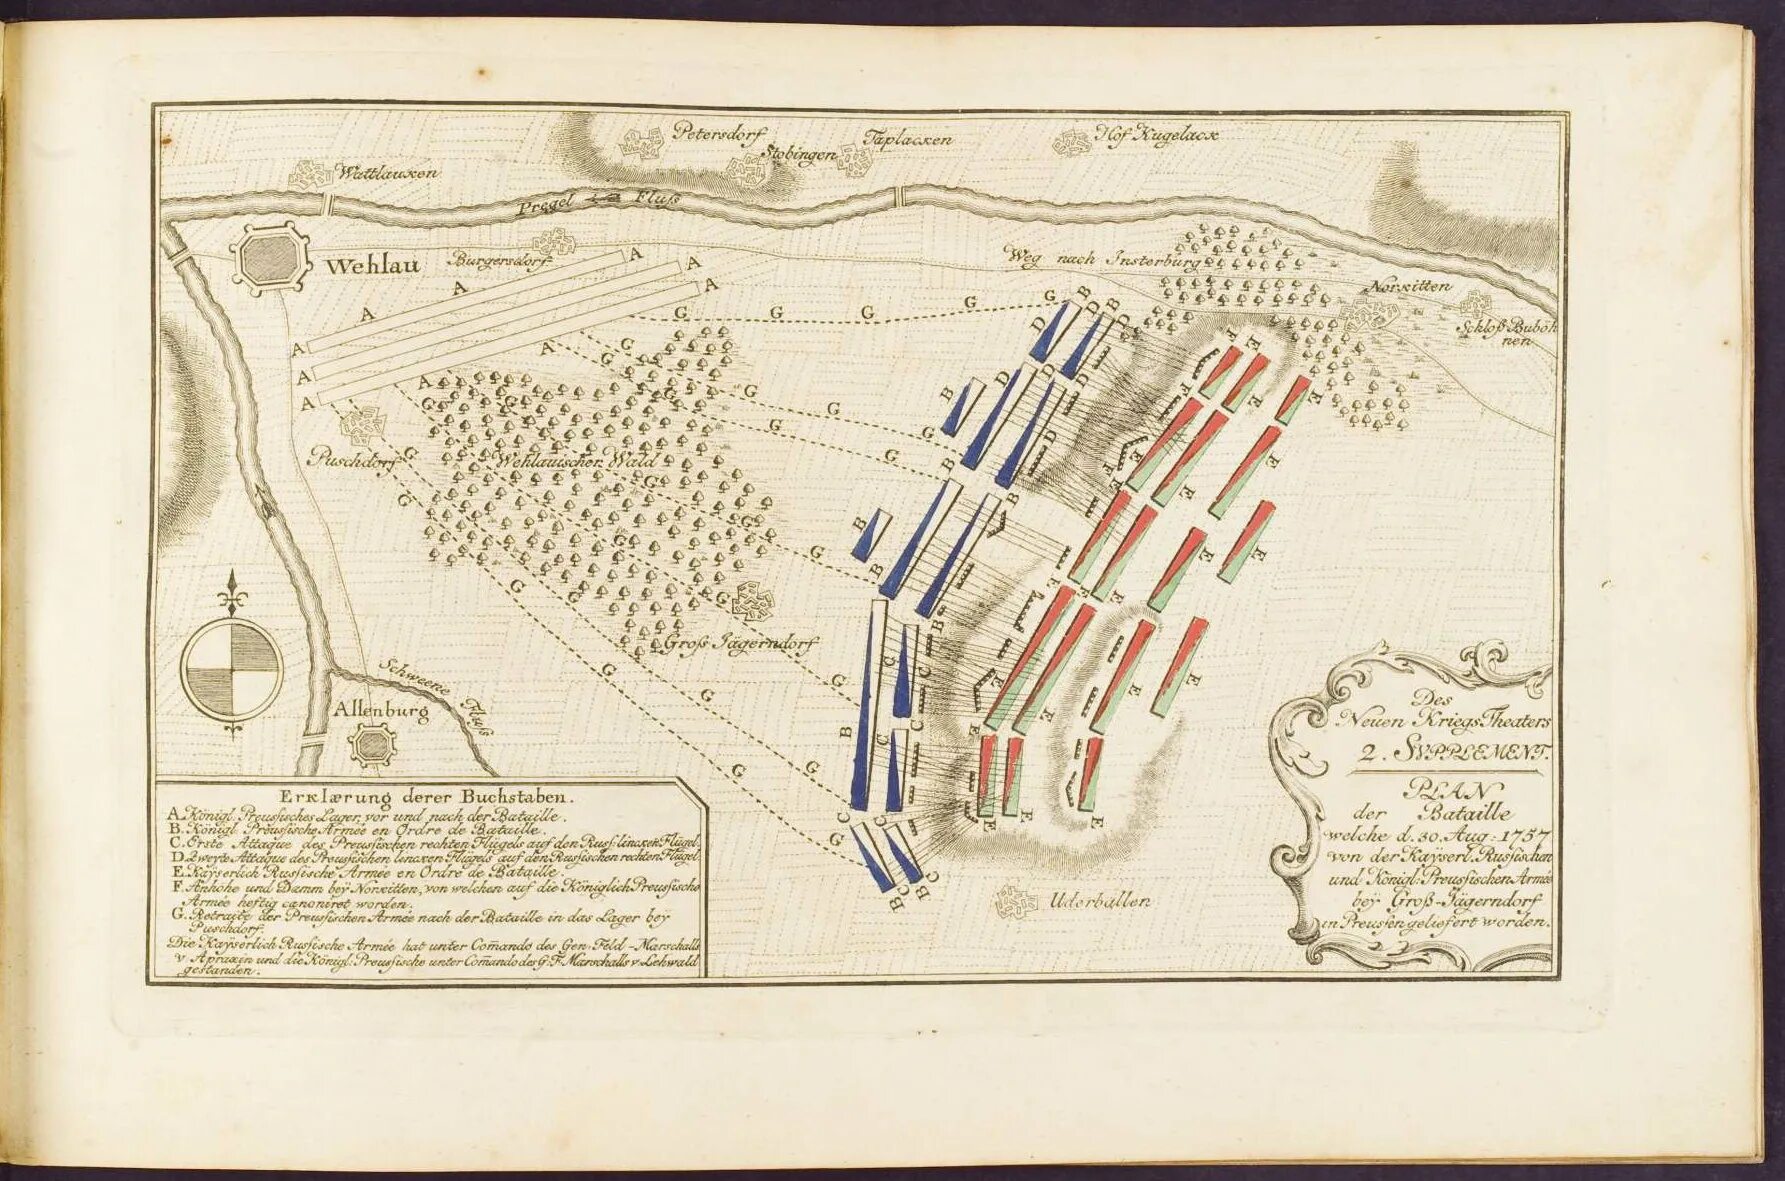 Petersdorf
Stobingen
Taplacken
Hof Kugelack
Wattlauken
Pregel Fluß
Wehlau
Burgersdorf
Weg nach Insterburg
Norkitten
Schloß Buboh
nen
Puschdorf
Wehlauischer Wald
Groß Jägerndorf
Schweene Fluß
Allenburg
Uderballen
A
B
C
D
E
F
G
Erklærung derer Buchstaben.
A. Königl. Preusisches Lager, vor und nach der Bataille.
B. Königl. Preusische Armée en Ordre de Bataille.
C. Erste Attaque des Preusischen rechten Flügels auf den Russ: lincken Flügel.
D. Zweyte Attaque des Preusischen lencken Flügels auf den Russischen rechten Flügel.
E. Kayserlich Russische Armée en Ordre de Bataille.
F. Anhöhe und Damm bey Norkitten, von welchen auf die Königlich Preusische
Armée heftig canoniret worden.
G. Retraite der Preusischen Armée nach der Bataille in das Lager bey
Puschdorf.
Die Kayserlich Russische Armée hat unter Com̄ando des Gen. Feld-Marschalls
v Apraxin und die Königl: Preussische unter Com̄ando des G. F. Marschalls v Lehwald
gestanden.
Des
Neuen Kriegs Theaters
2. SUPPLEMENT.
PLAN
der Bataille
welche d. 30. Aug: 1757
von der Kayserl. Russischen
und Königl: Preussischen Armée
bey Groß-Jägerndorf
in Preussen geliefert worden.